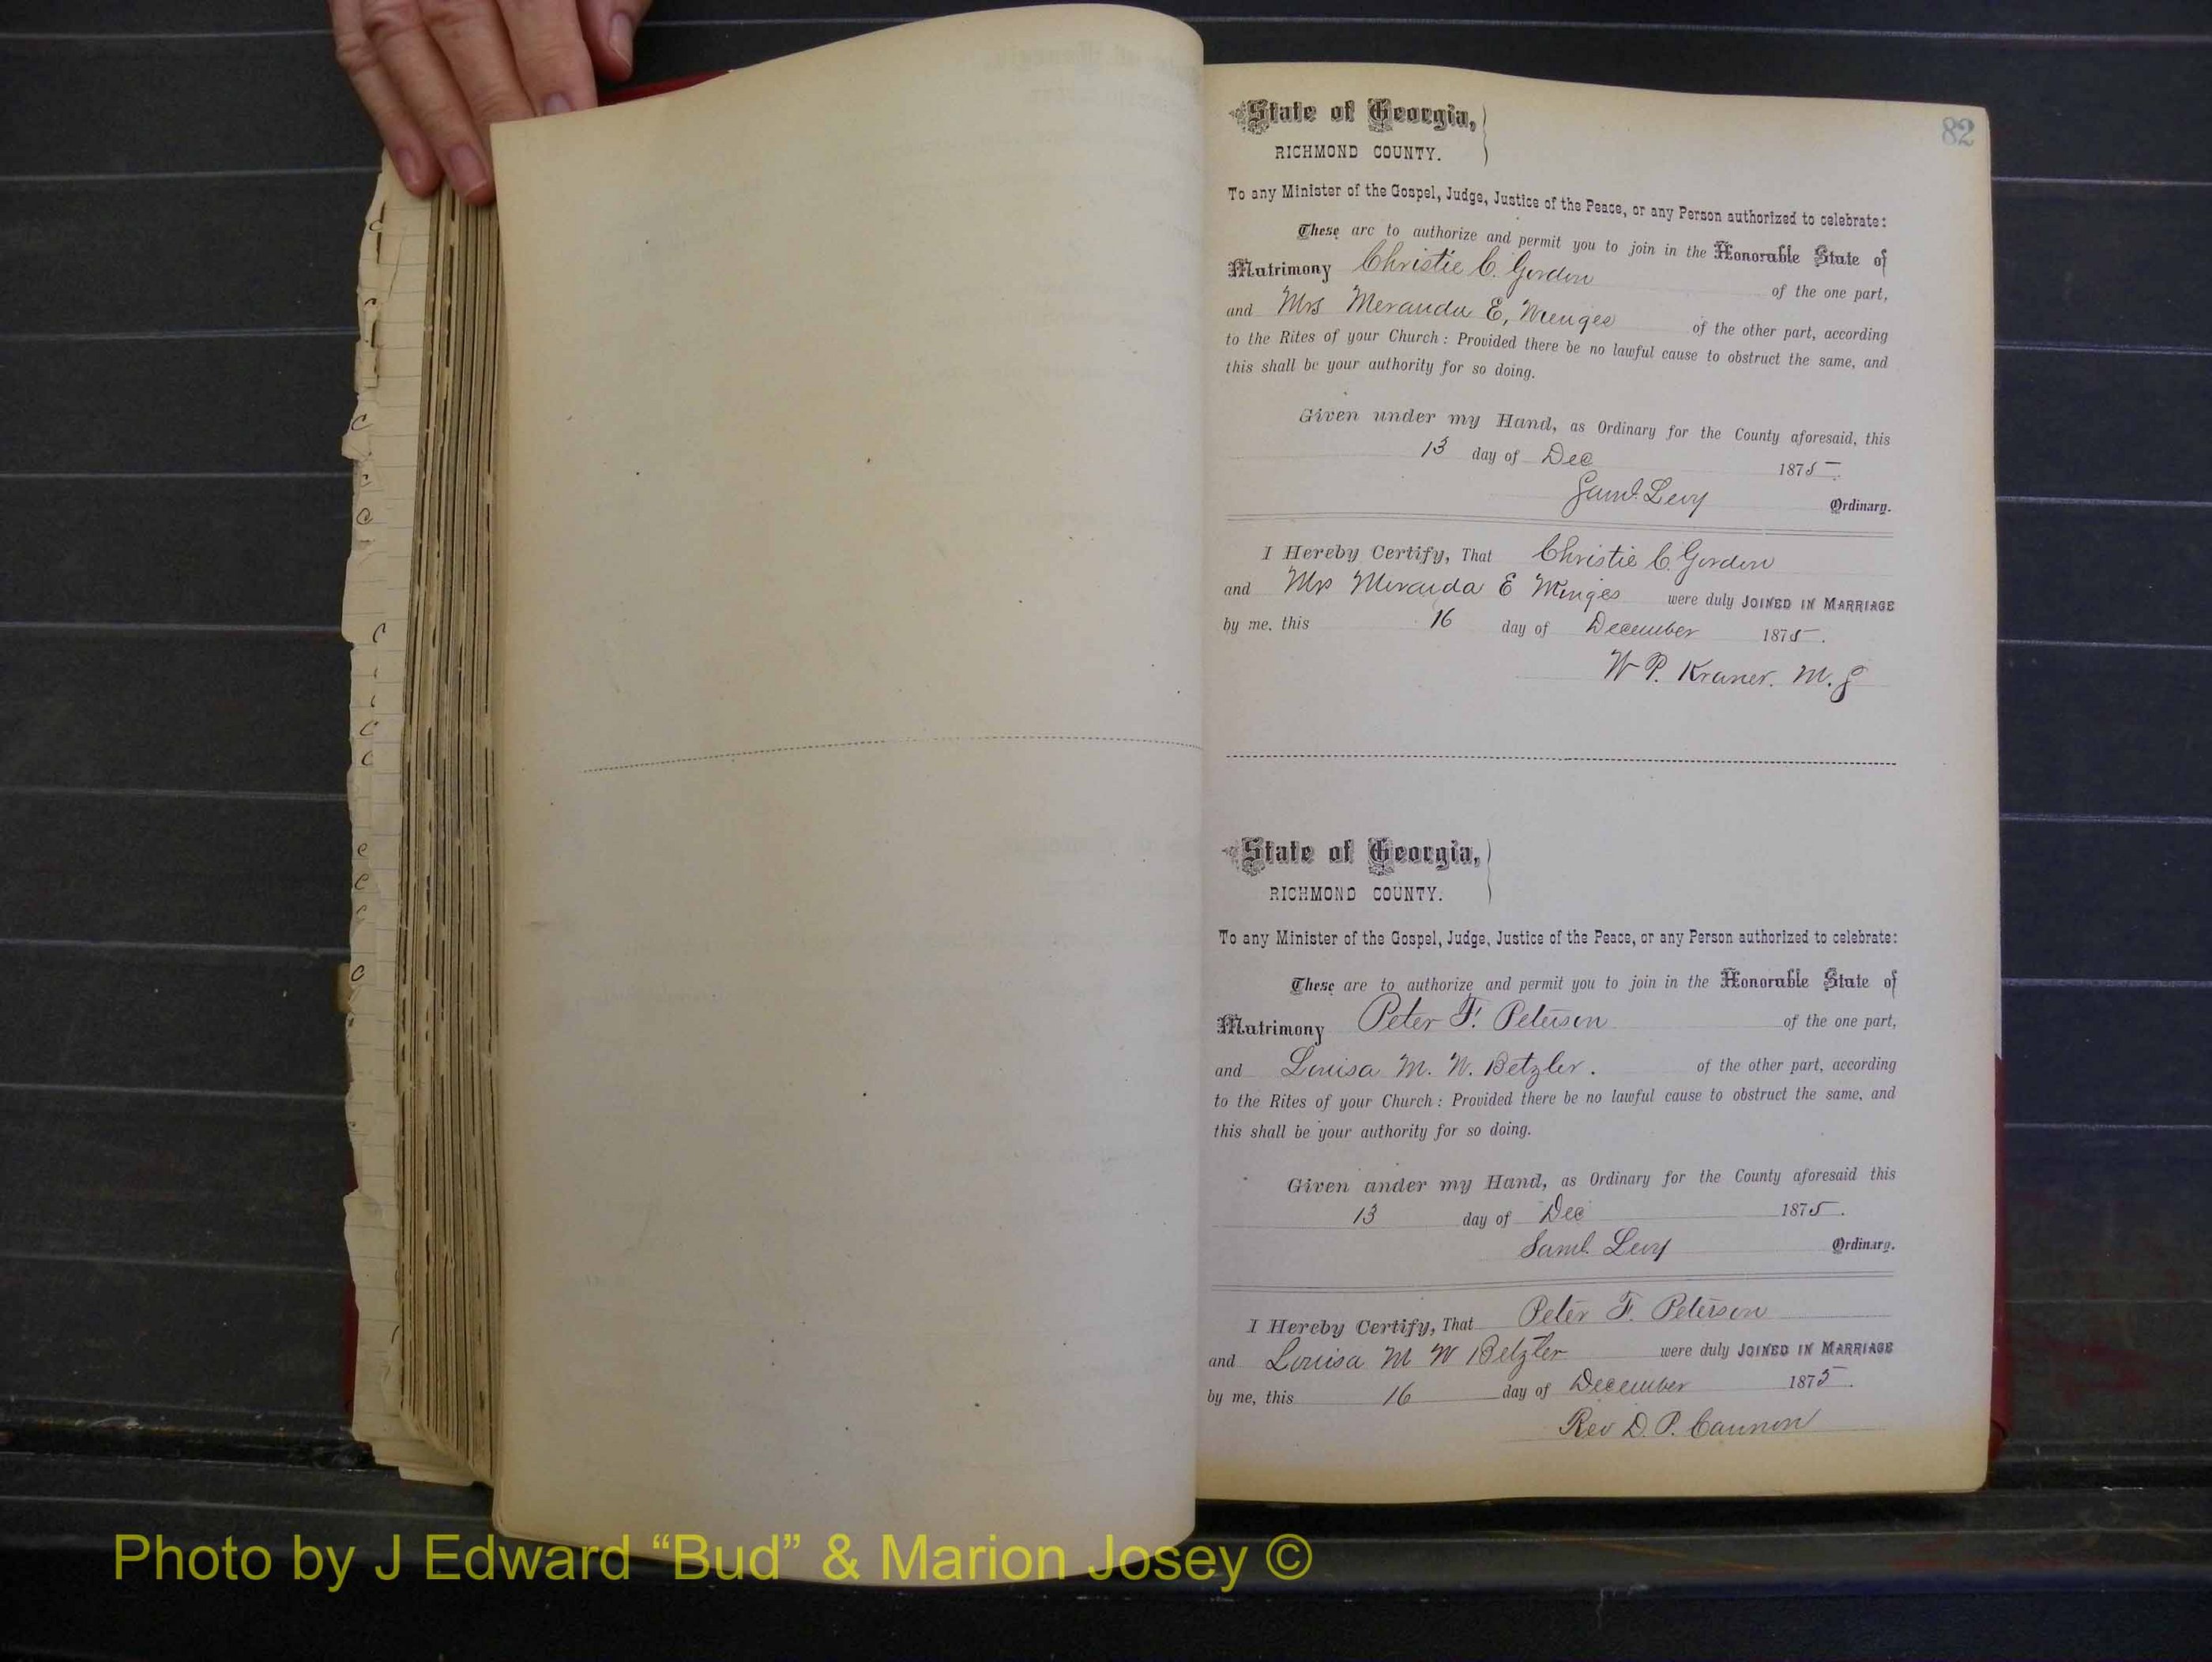 82
State of Georgia,
RICHMOND COUNTY.
To any Minister of the Gospel, Judge, Justice of the Peace, or any Person authorized to celebrate:
These are to authorize and permit you to join in the Honorable State of
Matrimony Christie C. Gordon of the one part,
and Mrs Meranda E, Menges of the other part, according
to the Rites of your Church: Provided there be no lawful cause to obstruct the same, and
this shall be your authority for so doing.
Given under my Hand, as Ordinary for the County aforesaid, this
13 day of Dec 1875.
Saml. Levy Ordinary.
I Hereby Certify, That Christie C. Gordon
and Mrs Meranda E Minges were duly JOINED IN MARRIAGE
by me, this 16 day of December 1875.
W P. Kramer. M. G
State of Georgia,
RICHMOND COUNTY.
To any Minister of the Gospel, Judge, Justice of the Peace, or any Person authorized to celebrate:
These are to authorize and permit you to join in the Honorable State of
Matrimony Peter F. Peterson of the one part,
and Louisa M. W. Betzler. of the other part, according
to the Rites of your Church: Provided there be no lawful cause to obstruct the same, and
this shall be your authority for so doing.
Given under my Hand, as Ordinary for the County aforesaid this
13 day of Dec 1875.
Saml. Levy Ordinary.
I Hereby Certify, That Peter F. Peterson
and Louisa M W Betzler were duly JOINED IN MARRIAGE
by me, this 16 day of December 1875.
Rev D. P. Cannon
Photo by J Edward “Bud” & Marion Josey ©